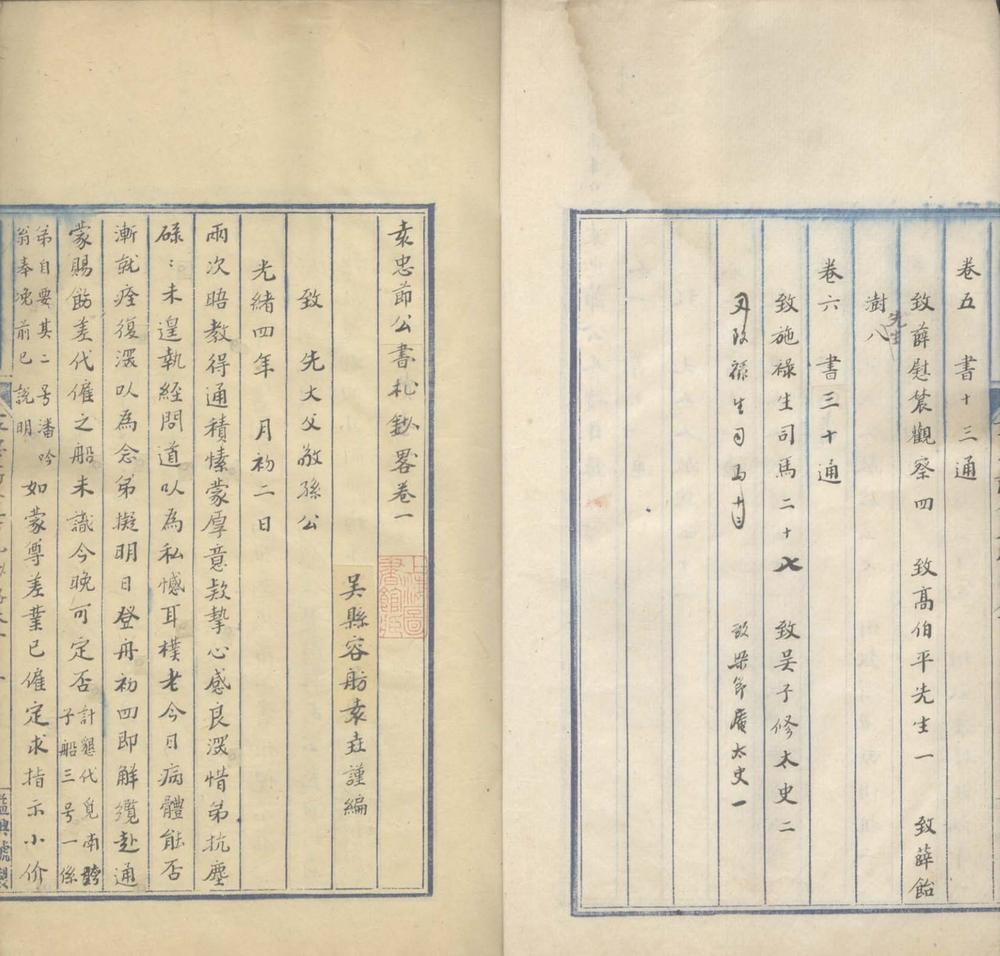 卷五　書十三通
致薛慰農觀察四　致高伯平先生一　致薛飴
澍八
先生
卷六　書三十通
致施祿生司馬二十七　致吳子修太史二
又致祿生司馬十三　致梁節庵太史一
袁忠節公書札鈔畧卷一
吳縣容舫袁垚謹編
上海圖書館藏
致　先大父敬孫公
光緒四年　月初二日
兩次晤教得通積愫蒙厚意欵摯心感良深惜弟抗塵
碌：未遑執經問道以為私憾耳樸老今日病體能否
漸就痊復深以為念弟擬明日登舟初四即解纜赴通
蒙賜飭差代僱之船未識今晚可定否計懇代覓南
子船三号一係
弟自要其二号潘吟
翁奉挽前已說明如蒙尊差業已僱定求指示小价